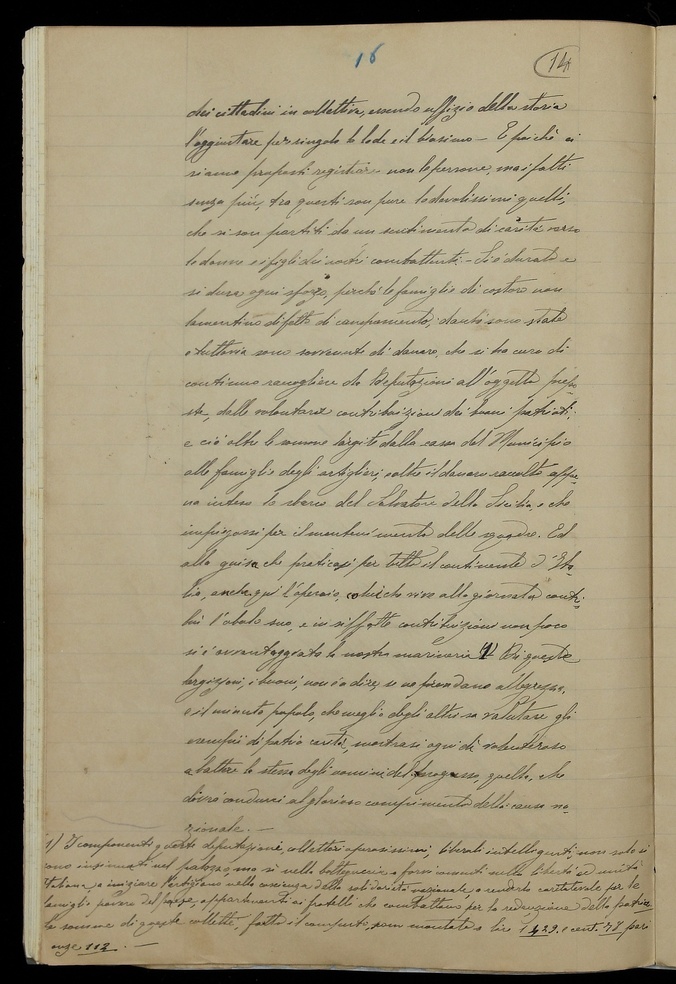 16
14
dei cittadini in collettiva, essendo uffizio della storia
l'aggiustare per singolo la lode e il biasimo — E poichè ci
siamo proposti registrare non le persone, ma i fatti
senza più, tra questi son pure lodevolissimi quelli,
che si son partiti da un sentimento di carità verso
le donne e i figli dei nostri combattenti — Si è durato e
si dura ogni sforzo, perchè le famiglie di costoro non
lamentino difetto di campamento; dante sono state
e tuttavia sono sovvenute di danaro, che si ha cura di
continuo raccogliere da Deputazioni all'oggetto prepo
ste, dalle volontarie contribuzioni dei buoni patrioti:
e ciò oltre le somme largite dalla cassa del Municipio
alle famiglie degli artiglieri, oltre il danaro raccolto appe
na inteso lo sbarco del Salvatore della Sicilia, e che
impiegossi per il mantenimento delle squadre. Ed
alla guisa che praticasi per tutto il continente d'Ita-
lia, anche qui l'operaio, colui che vive alla giornata contri-
buì l'obolo suo, e in siffatte contribuzioni non poco
si è avvantaggiata la nostra marineria (1) Di queste
largizioni, i buoni, non è a dire, se ne prendano allegrezza,
e il minuto popolo, che meglio degli altri sa valutare gli
esempii di patria carità, mostrasi ogni dì volenteroso
a battere la stessa degli uomini del progresso, quella, che
dovrà condurci al glorioso compimento della causa na-
zionale. —
1) I componenti questa deputazione, collettori operosissimi, liberali intelligenti, non solo si
sono insinuati nel palazzo, ma sì nelle botteghe a far sentire nella libertà ed unità
Italiana, a iniziare l'artigiano nella coscienza della solidarietà nazionale, a renderlo caritatevole per le
famiglie povere del paese, appartenenti ai fratelli che combattono per la redenzione della patria
le somme di queste collette, fatto il computo, sono montate a lire 1429. e cent. 77 pari
onze 112. —